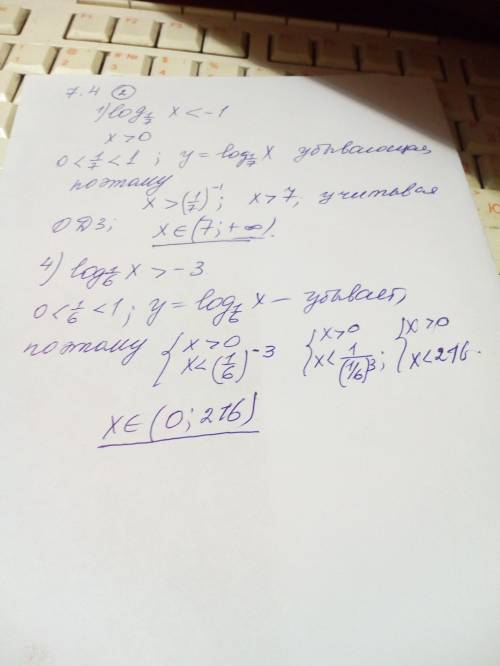 7.4 (2)
1) log_{1/7} x < -1
x > 0
0 < 1/7 < 1 ; y = log_{1/7} x убывающая,
поэтому
x > (1/7)^{-1} ; x > 7 ; учитывая
ОДЗ; x ∈ (7; +∞).
4) log_{1/6} x > -3
0 < 1/6 < 1 ; y = log_{1/6} x – убывает,
поэтому { x > 0 x < (1/6)^{-3} { x > 0 x < 1/(1/6)^3 ; { x > 0 x < 216.
x ∈ (0; 216)